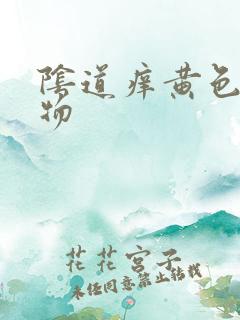 陰道痒黄色
物
花花宫子
未经同意禁止转载